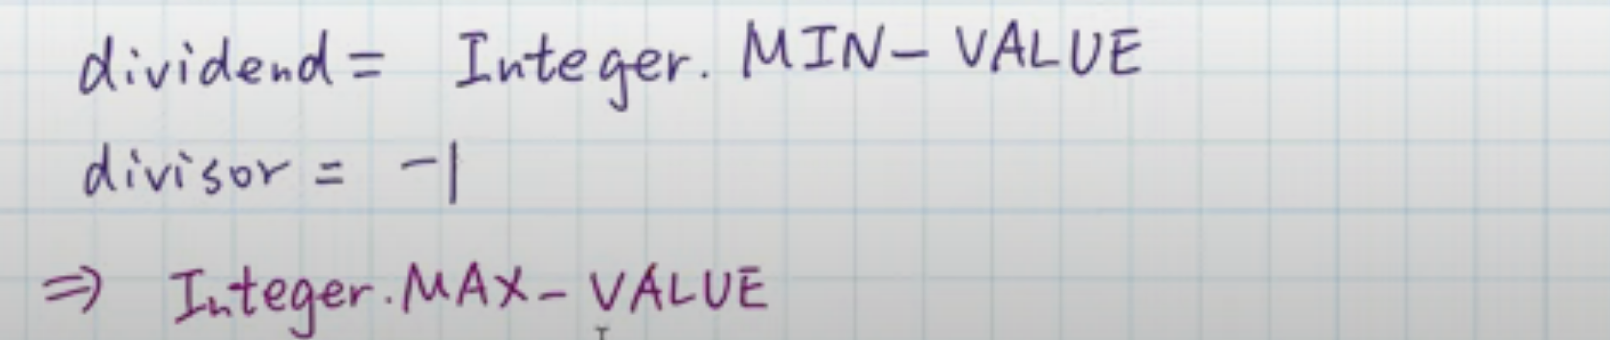 dividend = Integer. MIN_VALUE
divisor = -1
⇒ Integer.MAX_VALUE